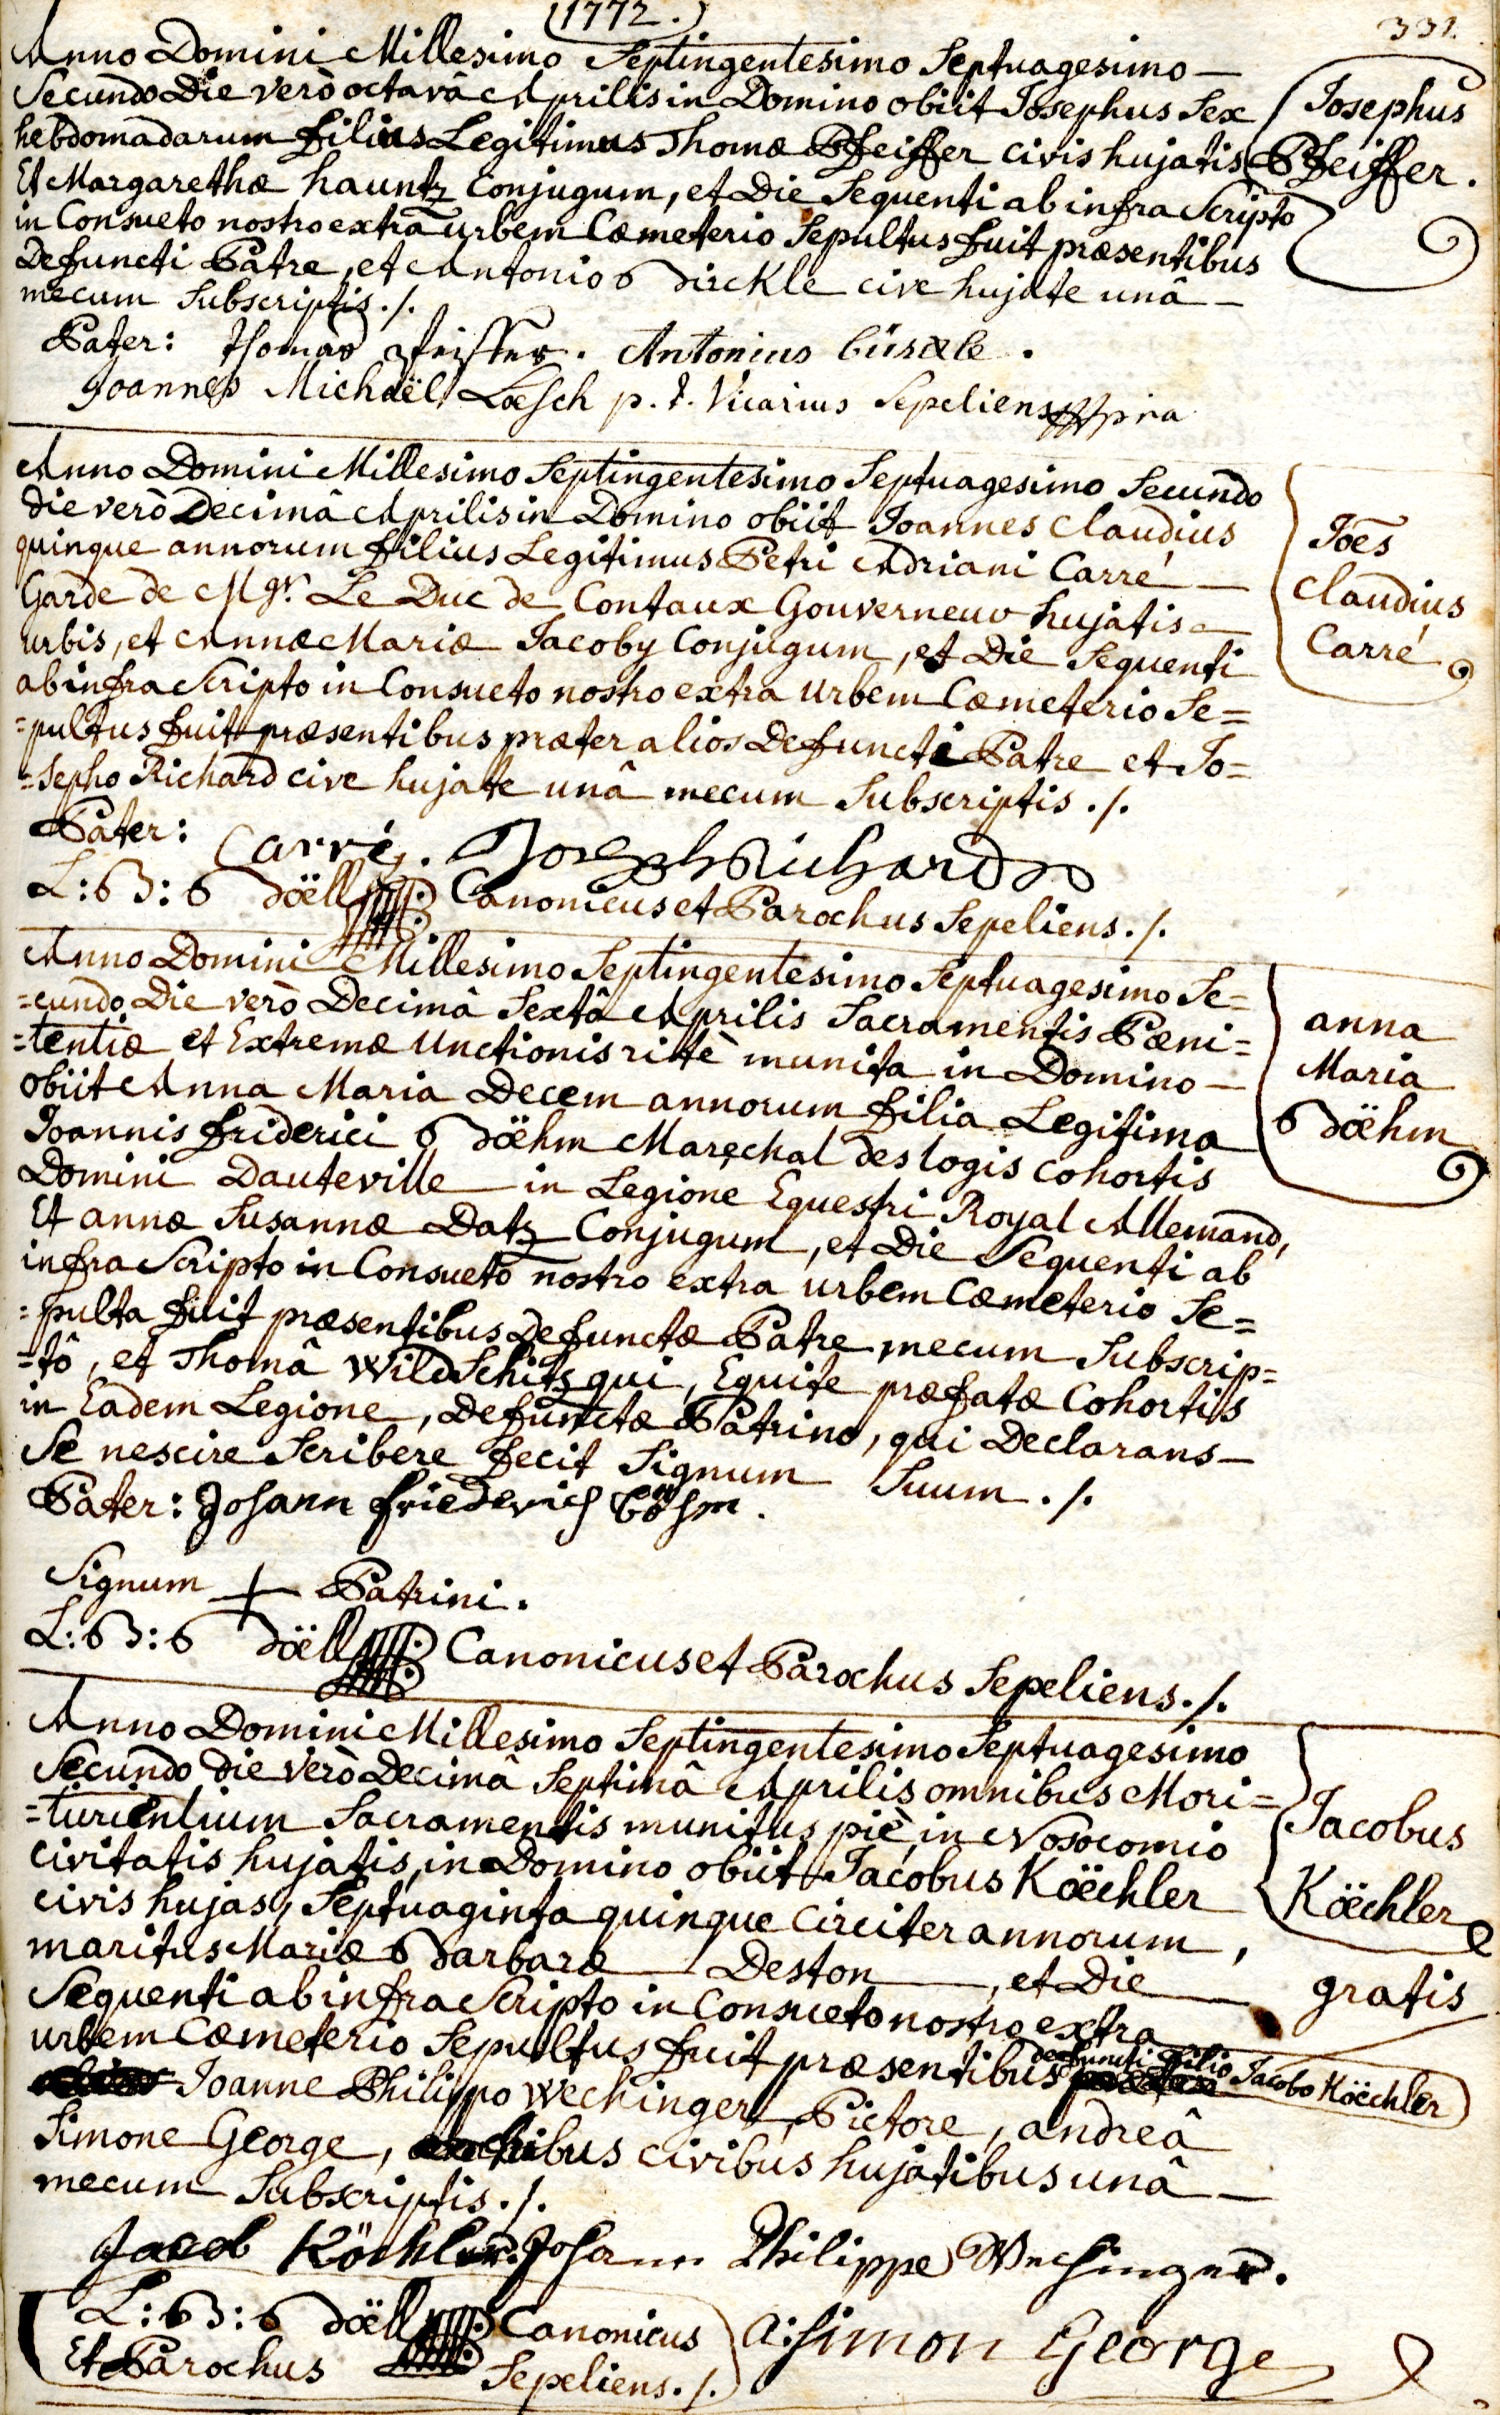 (1772.)
331.
Anno Domini Millesimo Septingentesimo Septuagesimo —
Secundo Die verò octavâ Aprilis in Domino obiit Josephus Sex
hebdomadarum filius Legitimus Thomæ Pfeiffer civis hujatis
Et Margarethæ hauntz Conjugum, et Die Sequenti ab infra Scripto
in Consueto nostro extra urbem Cæmeterio Sepultus fuit præsentibus
Defuncti Patre, et Antonio Birckle cive hujate unâ —
mecum Subscriptis ./.
Josephus
Pfeiffer.
Pater: Thomas Pfeiffer. Antonius
Joannes Michaël Lœsch p. t. Vicarius Sepeliens
Anno Domini Millesimo Septingentesimo Septuagesimo Secundo
die verò Decimâ Aprilis in Domino obiit Joannes Claudius
quinque annorum filius Legitimus Petri Adriani Carré —
Garde de Mgr. Le Duc de Contaux Gouverneur hujatis
urbis, et Annæ Mariæ Jacoby Conjugum, et Die Sequenti
ab infra Scripto in Consueto nostro extra urbem Cæmeterio Se=
=pultus fuit præsentibus præter alios Defuncti Patre et Jo=
=sepho Richard cive hujate unâ mecum Subscriptis ./.
Joēs
Claudius
Carré
Pater: Carré. Joseph Richard
L: B: Böell Canonicus et Parochus Sepeliens ./.
Anno Domini Millesimo Septingentesimo Septuagesimo Se=
=cundo Die verò Decimâ Sextâ Aprilis Sacramentis Pœni=
=tentiæ et Extremæ Unctionis ritè munita in Domino —
obiit Anna Maria Decem annorum filia Legitima
Joannis friderici Böehm Marechal des logis cohortis
Domini Dauteville in Legione Equestri Royal Allemand,
Et annæ Susannæ Datz Conjugum, et Die Sequenti ab
infra Scripto in Consueto nostro extra urbem Cæmeterio Se=
=pulta fuit præsentibus Defunctæ Patre mecum Subscrip=
=tô, et Thomâ WildSchitz qui, Equite præfatæ Cohortis
in Eadem Legione, Defunctæ Patrino, qui Declarans —
Se nescire Scribere fecit Signum Suum ./.
anna
Maria
Böehm
Pater: Johann friederich Böhm.
Signum + Patrini.
L: B: Böell Canonicus et Parochus Sepeliens ./.
Anno Domini Millesimo Septingentesimo Septuagesimo
Secundo die verò Decimâ Septimâ Aprilis omnibus Mori=
=turientium Sacramentis munitus piè, in Nosocomio
Civitatis hujatis, in Domino obiit Jacobus Köechler
civis hujas, Septuaginta quinque circiter annorum,
maritus Mariæ Barbaræ Deston —, et Die —
Sequenti ab infra Scripto in Consueto nostro extra
urbem Cæmeterio Sepultus fuit præsentibus defuncti filio Jacobo Köechler
Joanne Philippo Wechinger, Pictore, andreâ
Simone George, civibus hujatibus unâ —
mecum Subscriptis ./.
Jacobus
Köechler
gratis
Jacob Köchler. Johann Philippe Wechinger.
L: B: Böell Canonicus
Et Parochus Sepeliens ./.
A: Simon George